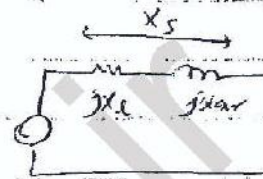 Xs
jXl jXar